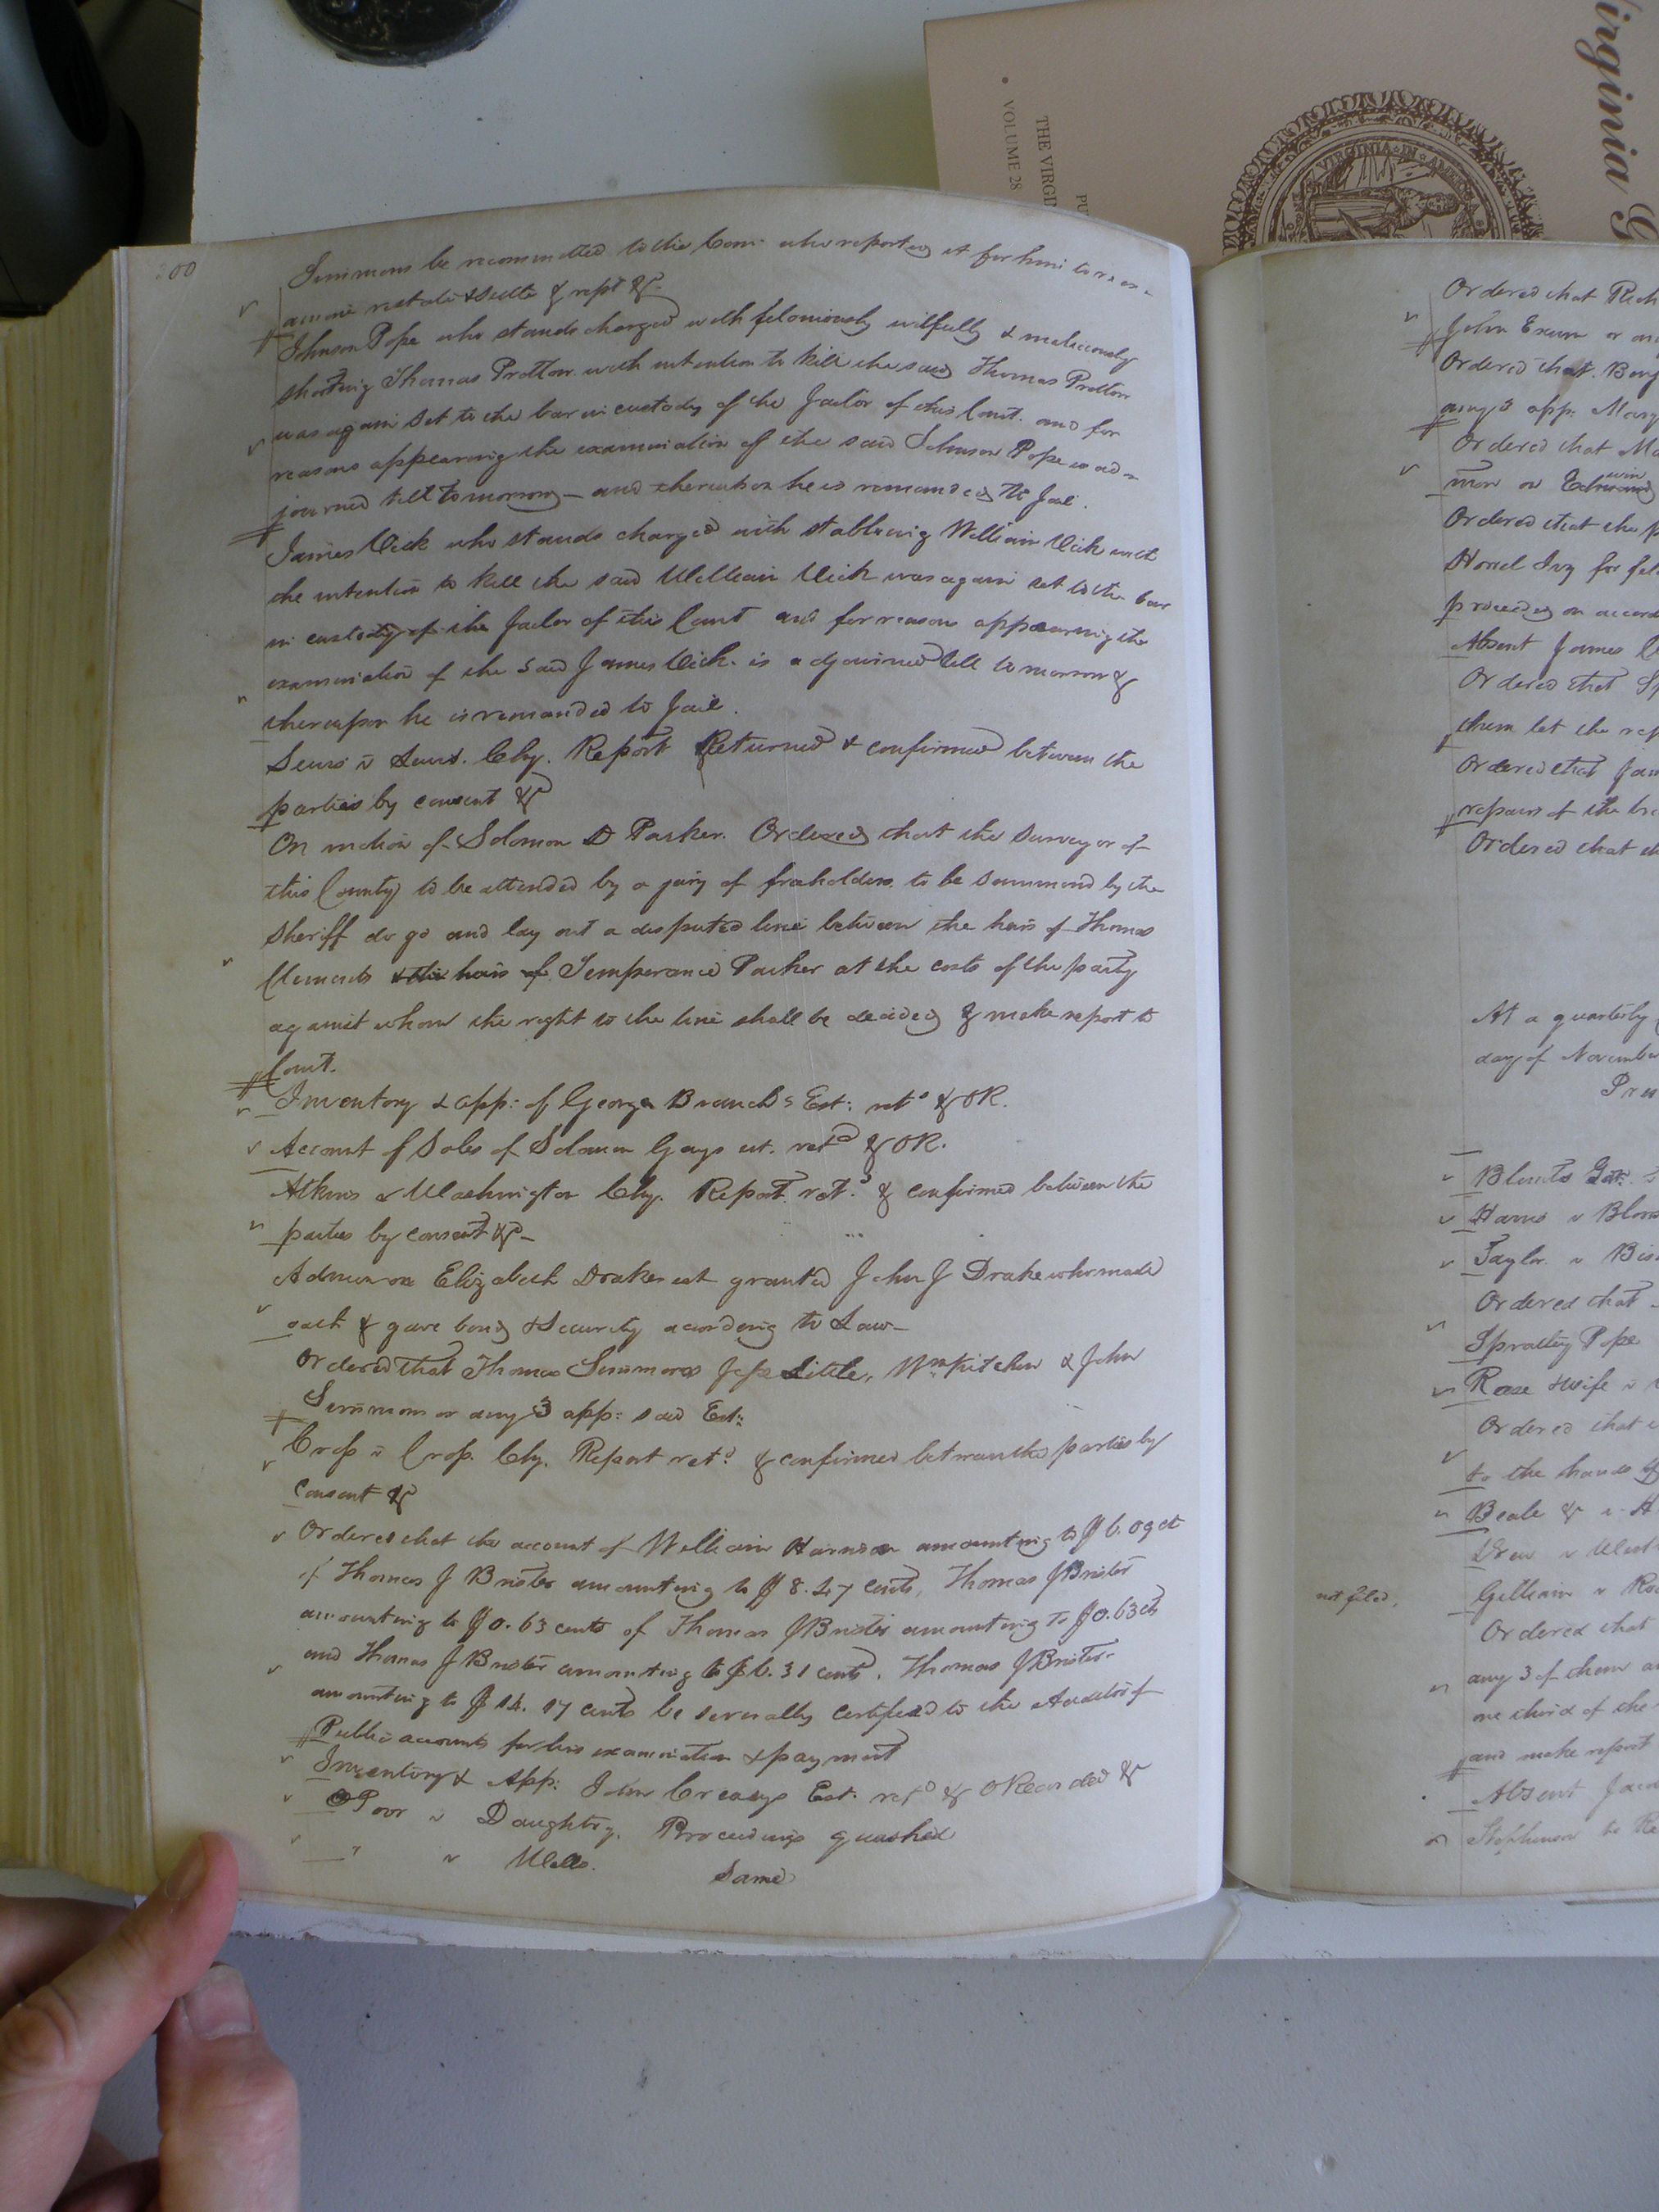 Virginia G
THE VIRGI
VOLUME 28
PU
VIRGINIA IN AME
200
Simmons be recommitted to the Com: who reported it for him to reex=
amine restate & settle & rept &c
Johnson Pope who stands charged with feloniously wilfully & maliciously
shooting Thomas Pretlow with intention to kill the said Thomas Pretlow
was again set to the bar in custody of the Jailor of this Court. and for
reasons appearing the examination of the said Johnson Pope is ad=
journed till tomorrow – and thereupon he is remanded to Jail.
James Vick who stands charged with stabbing William Vick with
the intention to kill the said William Vick was again set to the bar
in custody of the Jailor of this Court and for reasons appearing the
examination of the said James Vick. is adjourned till tomorrow &
thereupon he is remanded to Jail.
v Chy. Report Returned & confirmed between the
parties by consent &c
On motion of Solomon D Parker. Ordered that the Surveyor of
this County to be attended by a jury of freeholders to be summond by the
Sheriff do go and lay out a disputed line between the heirs of Thomas
Clements & the heirs of Temperance Parker at the costs of the party
against whom the right to the line shall be decided & make report to
Court.
Inventory & app: of George Branch's Est: retd & OR.
Account of Sales of Solomon Gays est. retd & OR.
Atkins v Washington Chy. Report retd & confirmed between the
parties by consent &c
Admon on Elizabeth Drakes est granted John J Drake who made
oath & gave bond & Security according to Law –
Ordered that Thomas Simmons Jesse Little, Wm Kitchen & John
Simmons or any 3 app: said Est:
Crop v Crop. Chy. Report retd & confirmed between the parties by
consent &c
Ordered that the account of William Harrison amounting to $6.09 ct
of Thomas J Brister amounting to $8.27 cents, Thomas J Brister
amounting to $0.63 cents of Thomas J Brister amounting to $0.63 cts
and Thomas J Brister amounting to $6.31 cents, Thomas J Brister
amounting to $14.17 cents be severally certified to the Auditor of
Public accounts for his examination & payment
Inventory & App: John Creasys Est. retd & ORecorded &
Poor v Daughtry. Proceedings quashed
" v Wells. Same
Ordered that
John Exum or
Ordered that
any 3 app:
Ordered that
win
Ordered that the
for
proceeded on
Absent James
Ordered that
them let the
Ordered that
repairs of the
Ordered that
At a quarterly
day of November
Blunts
v
Taylor v
Ordered that
Spratley Pope
& wife v
Ordered that
to the hands of
Beale & v
Drew v
not filed,
Gilliam v
Ordered that
any 3 of them
one third of the
and make report
Absent
Stephenson